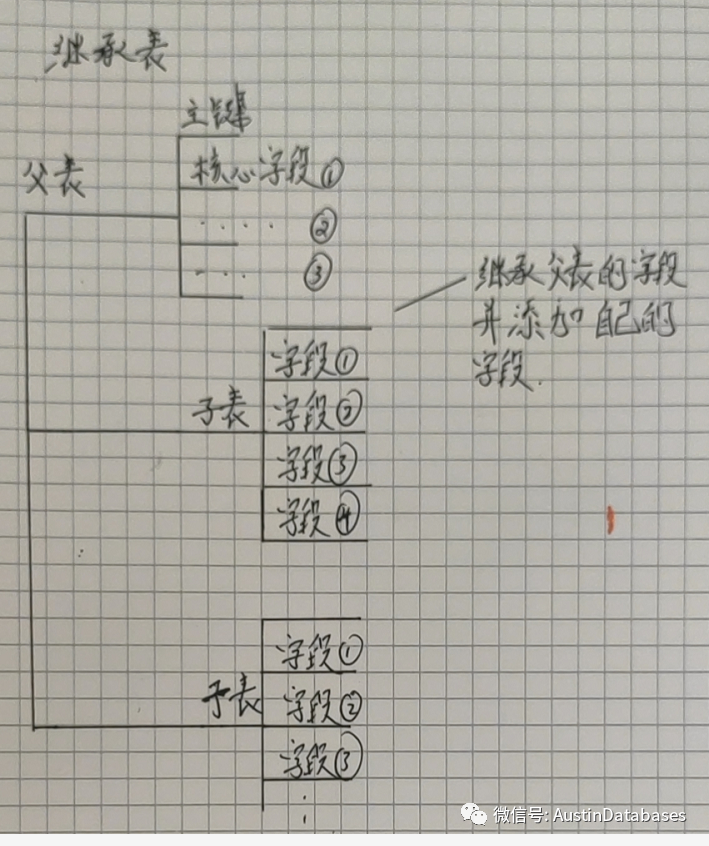 继承表
主键
父表
核心字段①
.....②
....③
继承父表的字段
并添加自己的
字段.
子表
字段①
字段②
字段③
字段④
子表
字段①
字段②
字段③
微信号: AustinDatabases